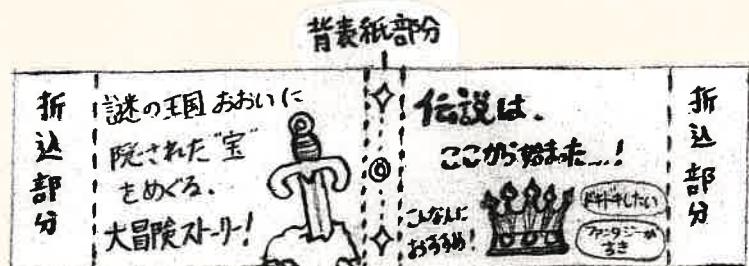 背表紙部分
折込部分
謎の王国おおいに
隠された"宝"
をめぐる、
大冒険ストーリー!
伝説は、
ここから始まった…!
こんな人に
おすすめ!
ドキドキしたい
ファンタジーが
すき
折込部分